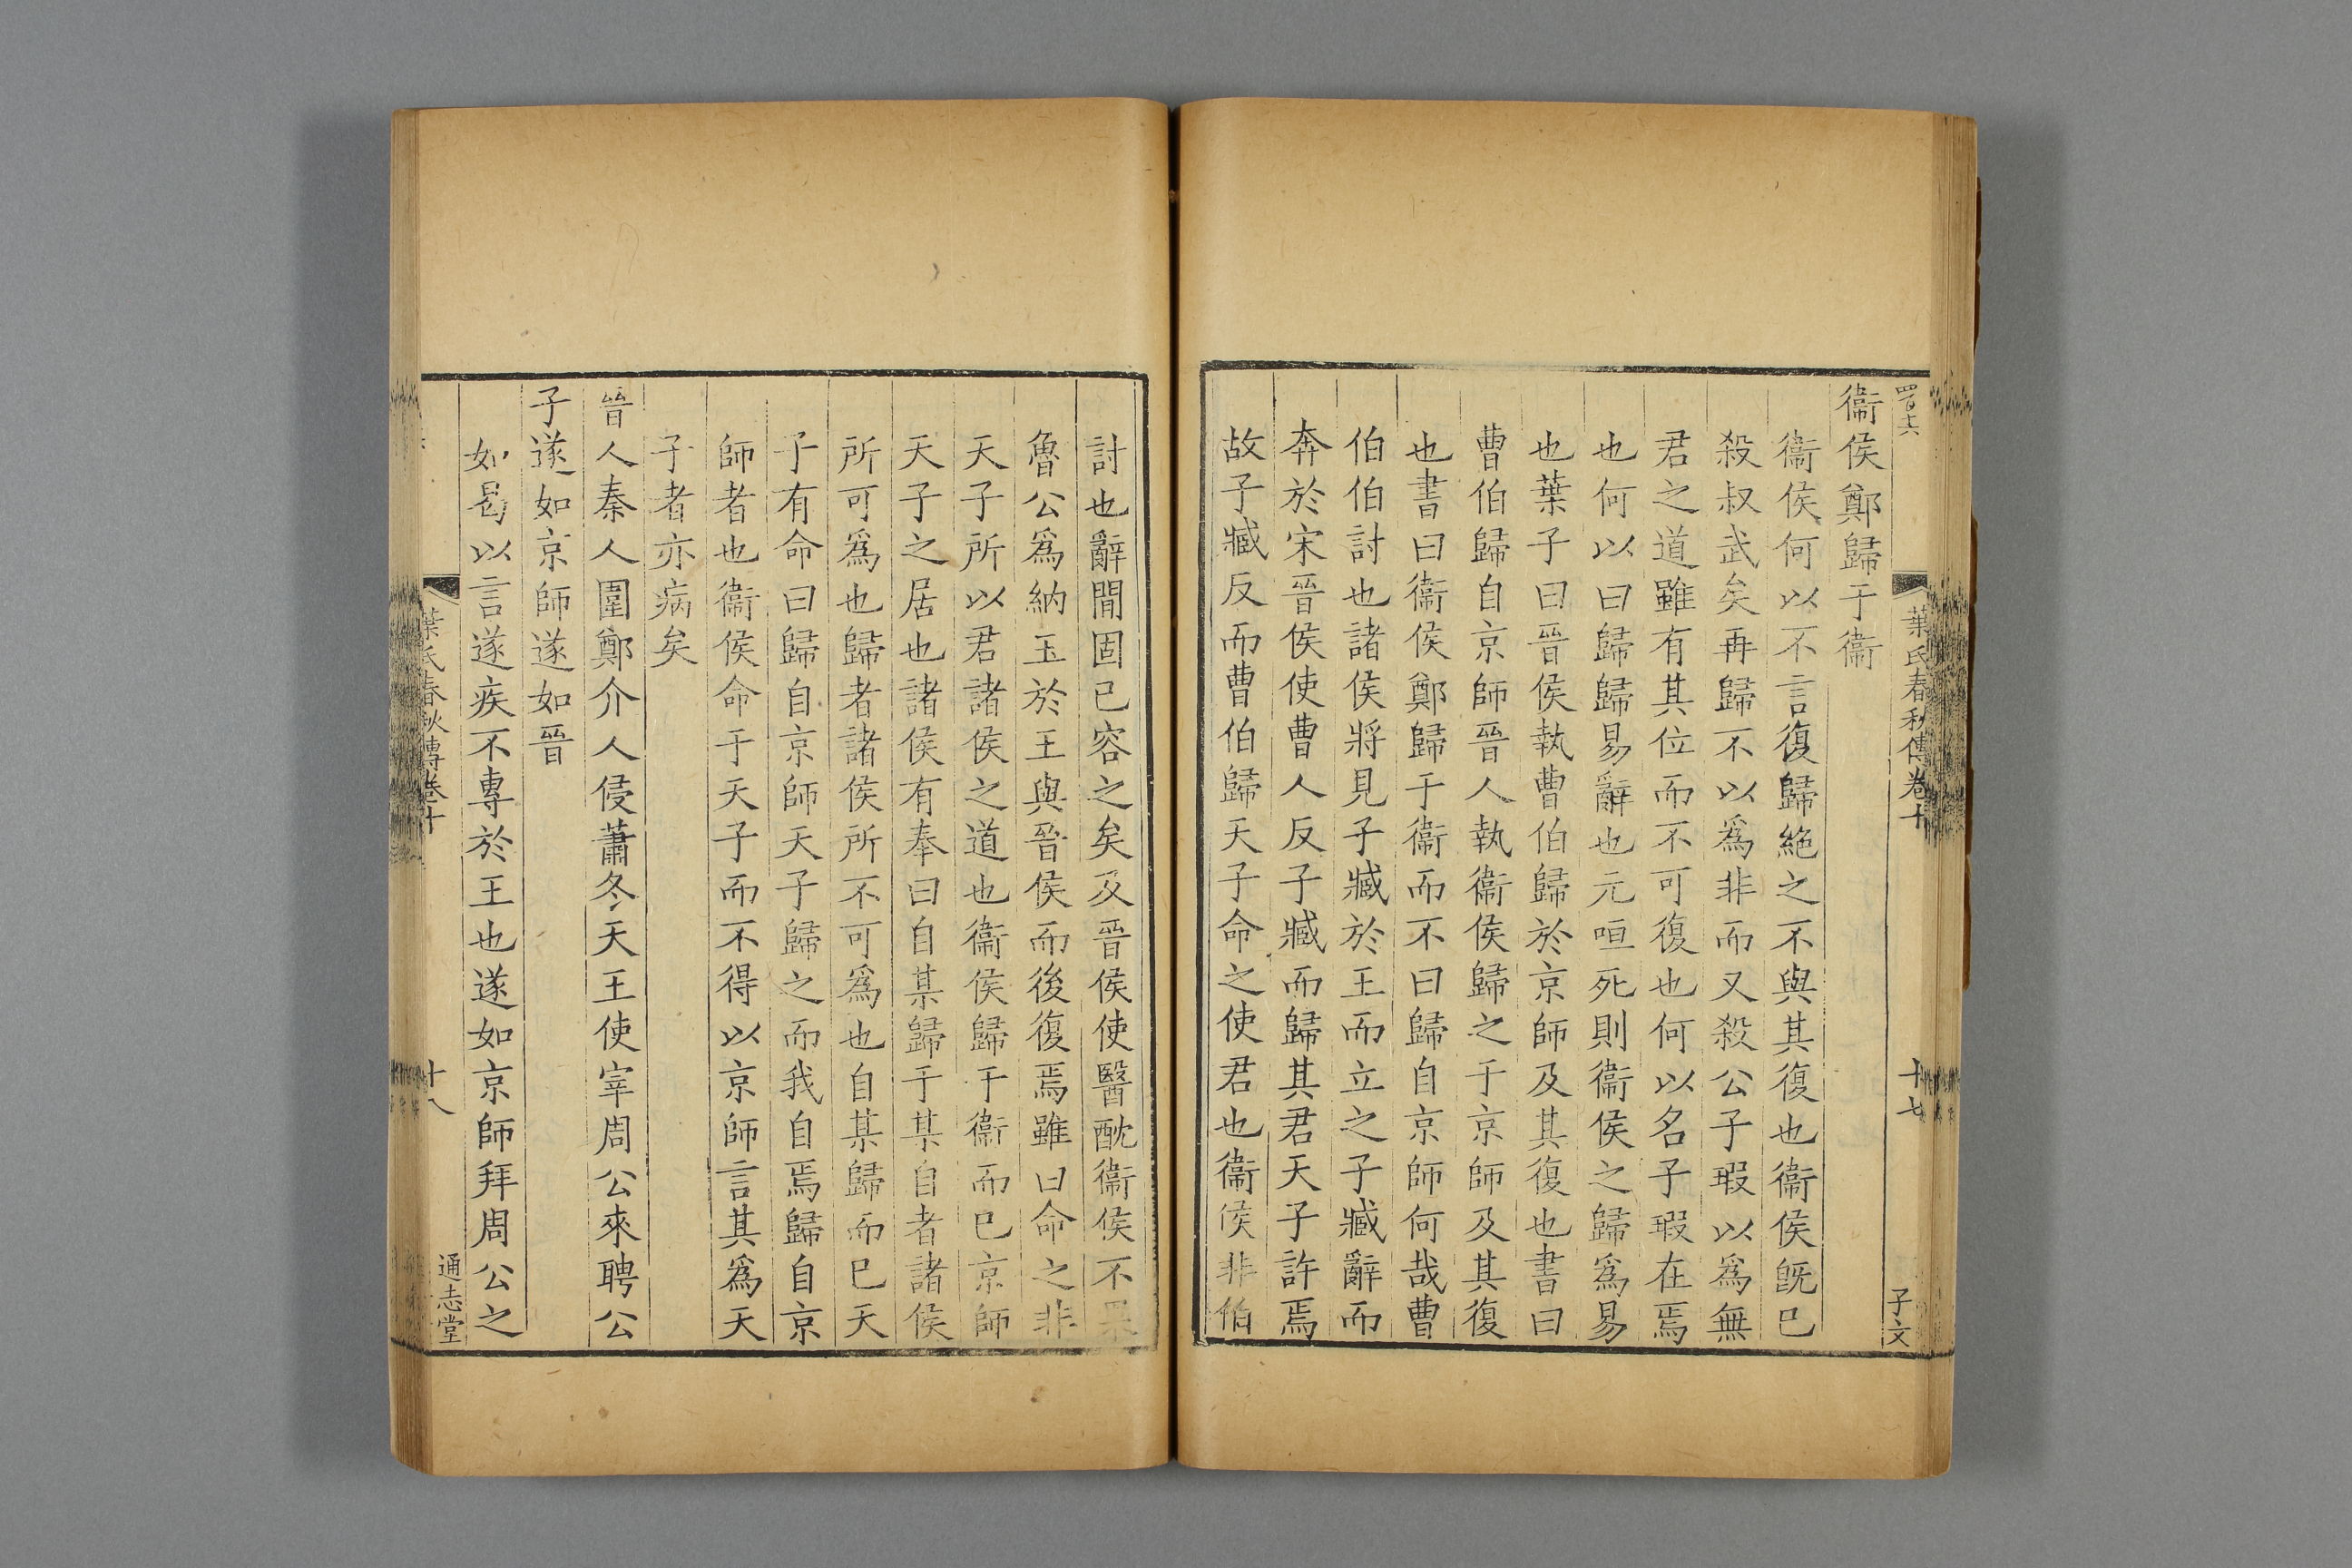 四百十六
葉氏春秋傳卷十
十七
子文
衞侯鄭歸于衞
衞侯何以不言復歸絶之不與其復也衞侯旣已
殺叔武矣再歸不以爲非而又殺公子瑕以爲無
君之道雖有其位而不可復也何以名子瑕在焉
也何以曰歸歸易辭也元咺死則衞侯之歸爲易
也葉子曰晉侯執曹伯歸於京師及其復也書曰
曹伯歸自京師晉人執衞侯歸之于京師及其復
也書曰衞侯鄭歸于衞而不曰歸自京師何哉曹
伯伯討也諸侯將見子臧於王而立之子臧辭而
奔於宋晉侯使曹人反子臧而歸其君天子許焉
故子臧反而曹伯歸天子命之使君也衞侯非伯
討也辭間固已容之矣及晉侯使醫酖衞侯不果
魯公爲納玉於王與晉侯而後復焉雖曰命之非
天子所以君諸侯之道也衞侯歸于衞而已京師
天子之居也諸侯有奉曰自某歸于某自者諸侯
所可爲也歸者諸侯所不可爲也自某歸而已天
子有命曰歸自京師天子歸之而我自焉歸自京
師者也衞侯命于天子而不得以京師言其爲天
子者亦病矣
晉人秦人圍鄭介人侵蕭冬天王使宰周公來聘公
子遂如京師遂如晉
如曷以言遂疾不專於王也遂如京師拜周公之
葉氏春秋傳卷十
十八
通志堂